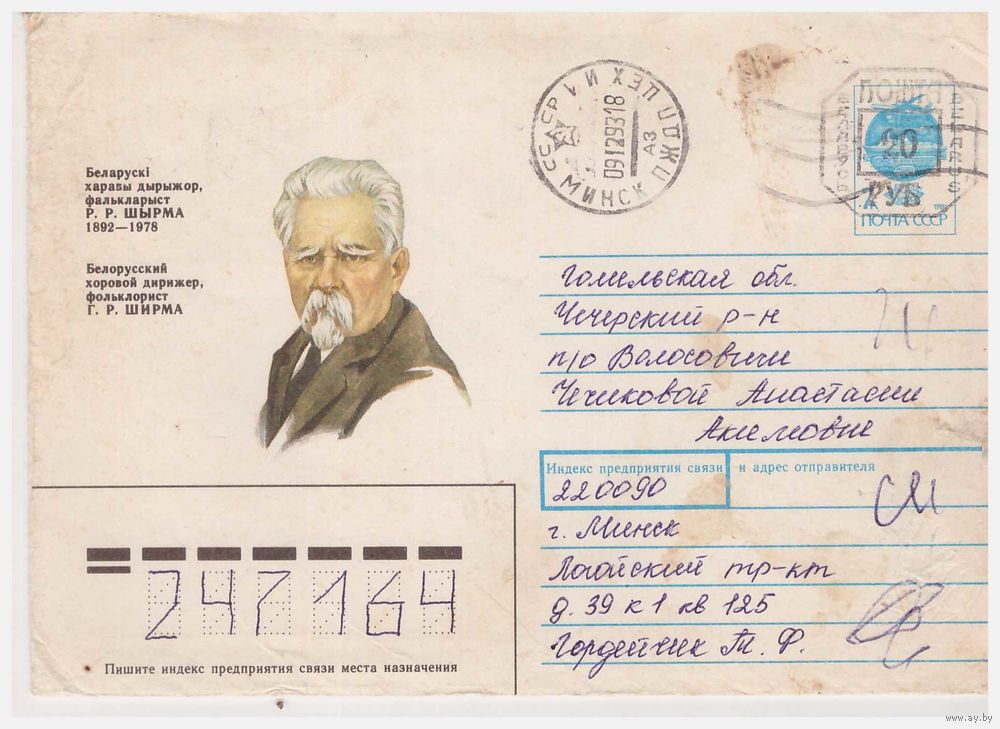 Беларускі
харавы дырыжор,
фалькларыст
Р. Р. ШЫРМА
1892—1978
Белорусский
хоровой дирижер,
фольклорист
Г. Р. ШИРМА
СССР
МИНСК
ПЖДП ЦЕХ И
АЗ
09129318
ПОШТА
20
РУБ
БЕЛАРУСЬ
ПОЧТА СССР
Гомельская обл.
Чечерский р-н
п/о Волосовичи
Чечиковой Анастасии
Акимовне
Индекс предприятия связи и адрес отправителя
220090
г. Минск
Логойский тр-кт
д. 39 к 1 кв 125
Гордейчик Т. Ф.
247164
Пишите индекс предприятия связи места назначения
www.ay.by